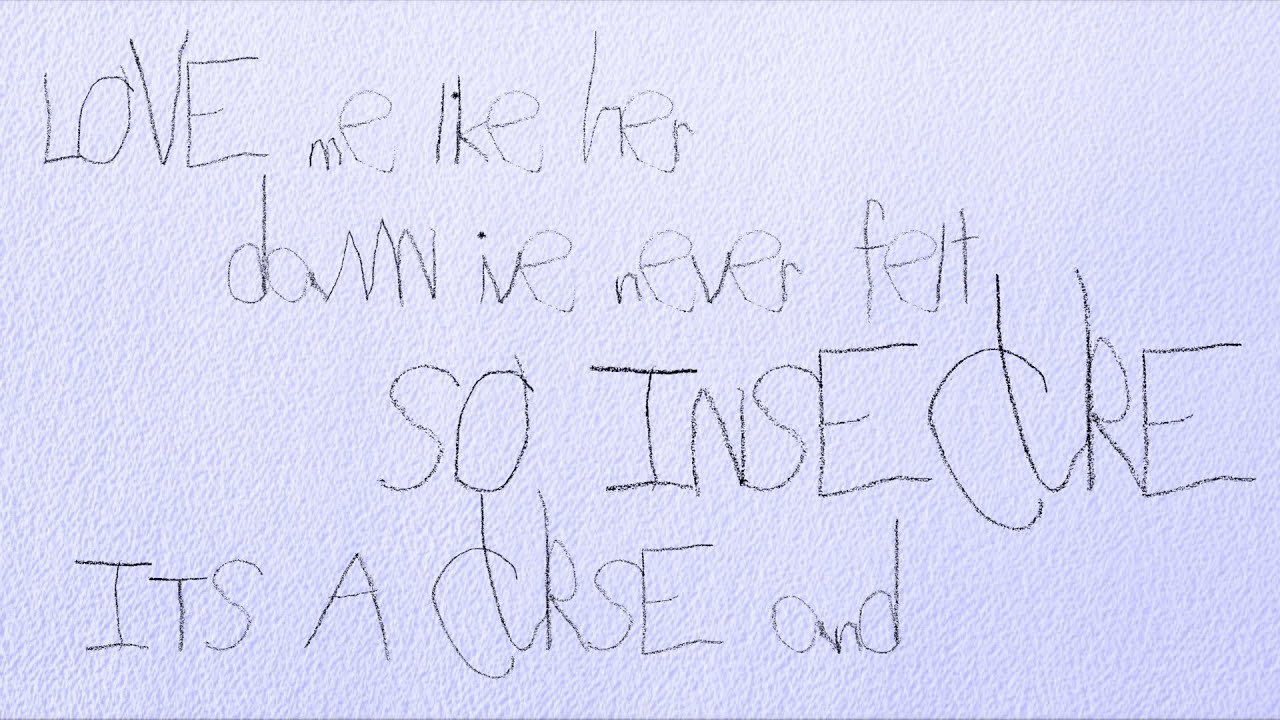 LOVE me like her
damn ive never felt
SO INSECURE
ITS A CURSE and